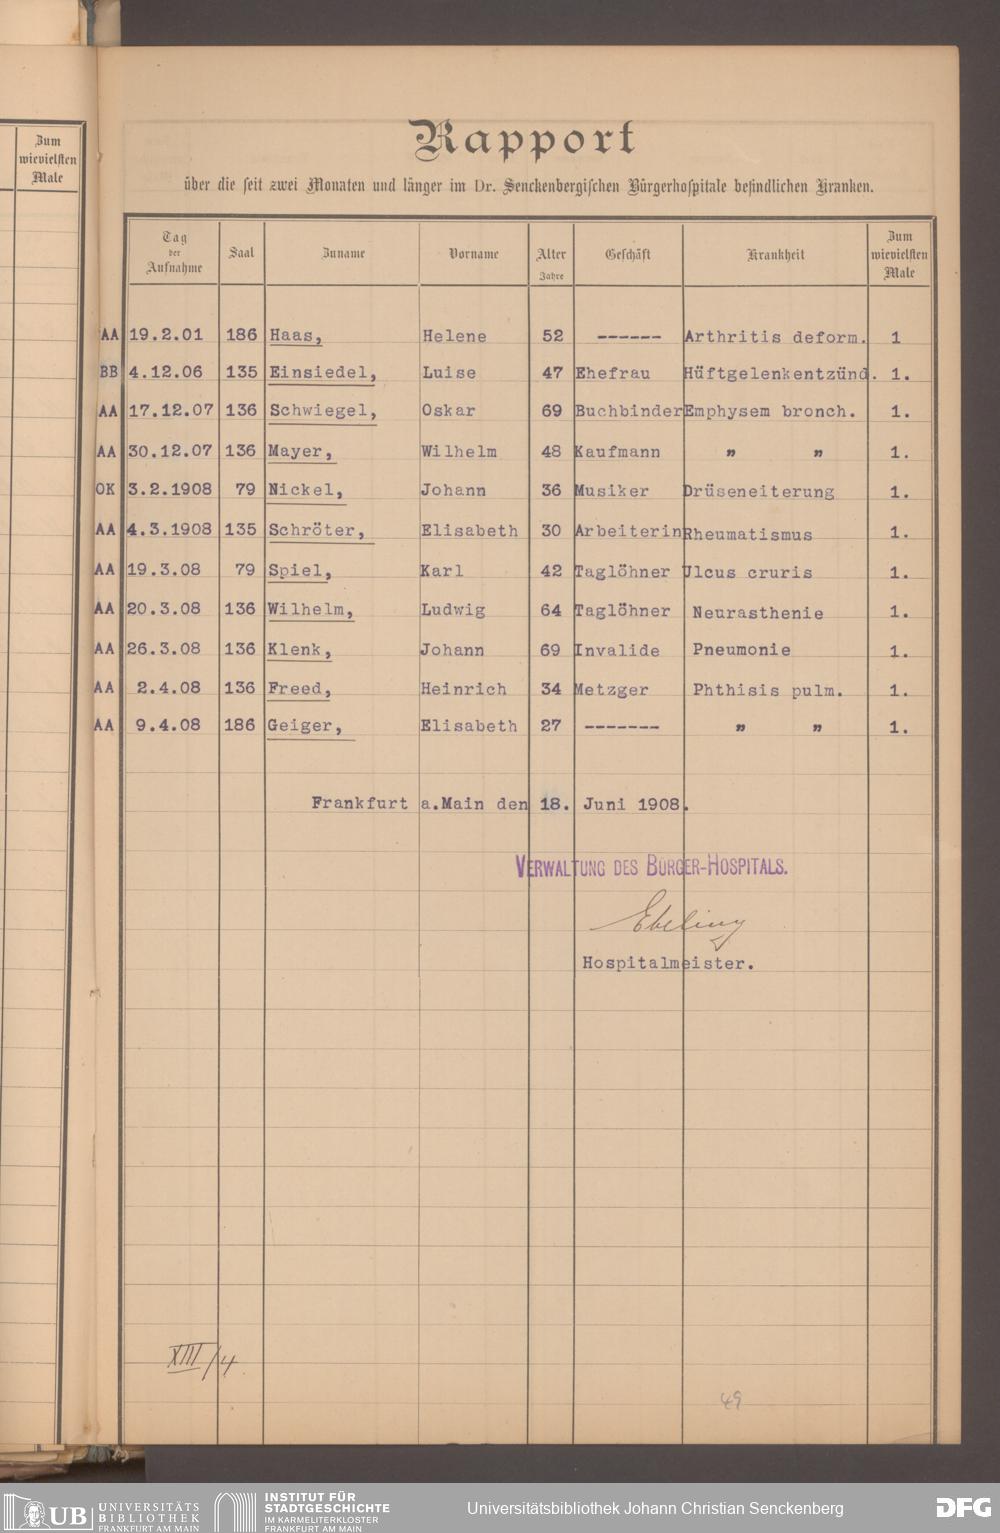 Zum
wievielsten
Male
Rapport
über die seit zwei Monaten und länger im Dr. Senckenbergischen Bürgerhospitale befindlichen Kranken.
Tag der Aufnahme Saal Zuname Vorname Alter Jahre Geschäft Krankheit Zum wievielsten Male
AA 19.2.01 186 Haas, Helene 52 ------ Arthritis deform. 1
BB 4.12.06 135 Einsiedel, Luise 47 Ehefrau Hüftgelenkentzünd. 1.
AA 17.12.07 136 Schwiegel, Oskar 69 Buchbinder Emphysem bronch. 1.
AA 30.12.07 136 Mayer, Wilhelm 48 Kaufmann " " 1.
OK 3.2.1908 79 Nickel, Johann 36 Musiker Drüseneiterung 1.
AA 4.3.1908 135 Schröter, Elisabeth 30 Arbeiterin Rheumatismus 1.
AA 19.3.08 79 Spiel, Karl 42 Taglöhner Ulcus cruris 1.
AA 20.3.08 136 Wilhelm, Ludwig 64 Taglöhner Neurasthenie 1.
AA 26.3.08 136 Klenk, Johann 69 Invalide Pneumonie 1.
AA 2.4.08 136 Freed, Heinrich 34 Metzger Phthisis pulm. 1.
AA 9.4.08 186 Geiger, Elisabeth 27 ------- " " 1.
Frankfurt a.Main den 18. Juni 1908.
VERWALTUNG DES BÜRGER-HOSPITALS.
Ebeling
Hospitalmeister.
XIII/4
49
UB UNIVERSITÄTS BIBLIOTHEK FRANKFURT AM MAIN
INSTITUT FÜR STADTGESCHICHTE IM KARMELITERKLOSTER FRANKFURT AM MAIN
Universitätsbibliothek Johann Christian Senckenberg
DFG